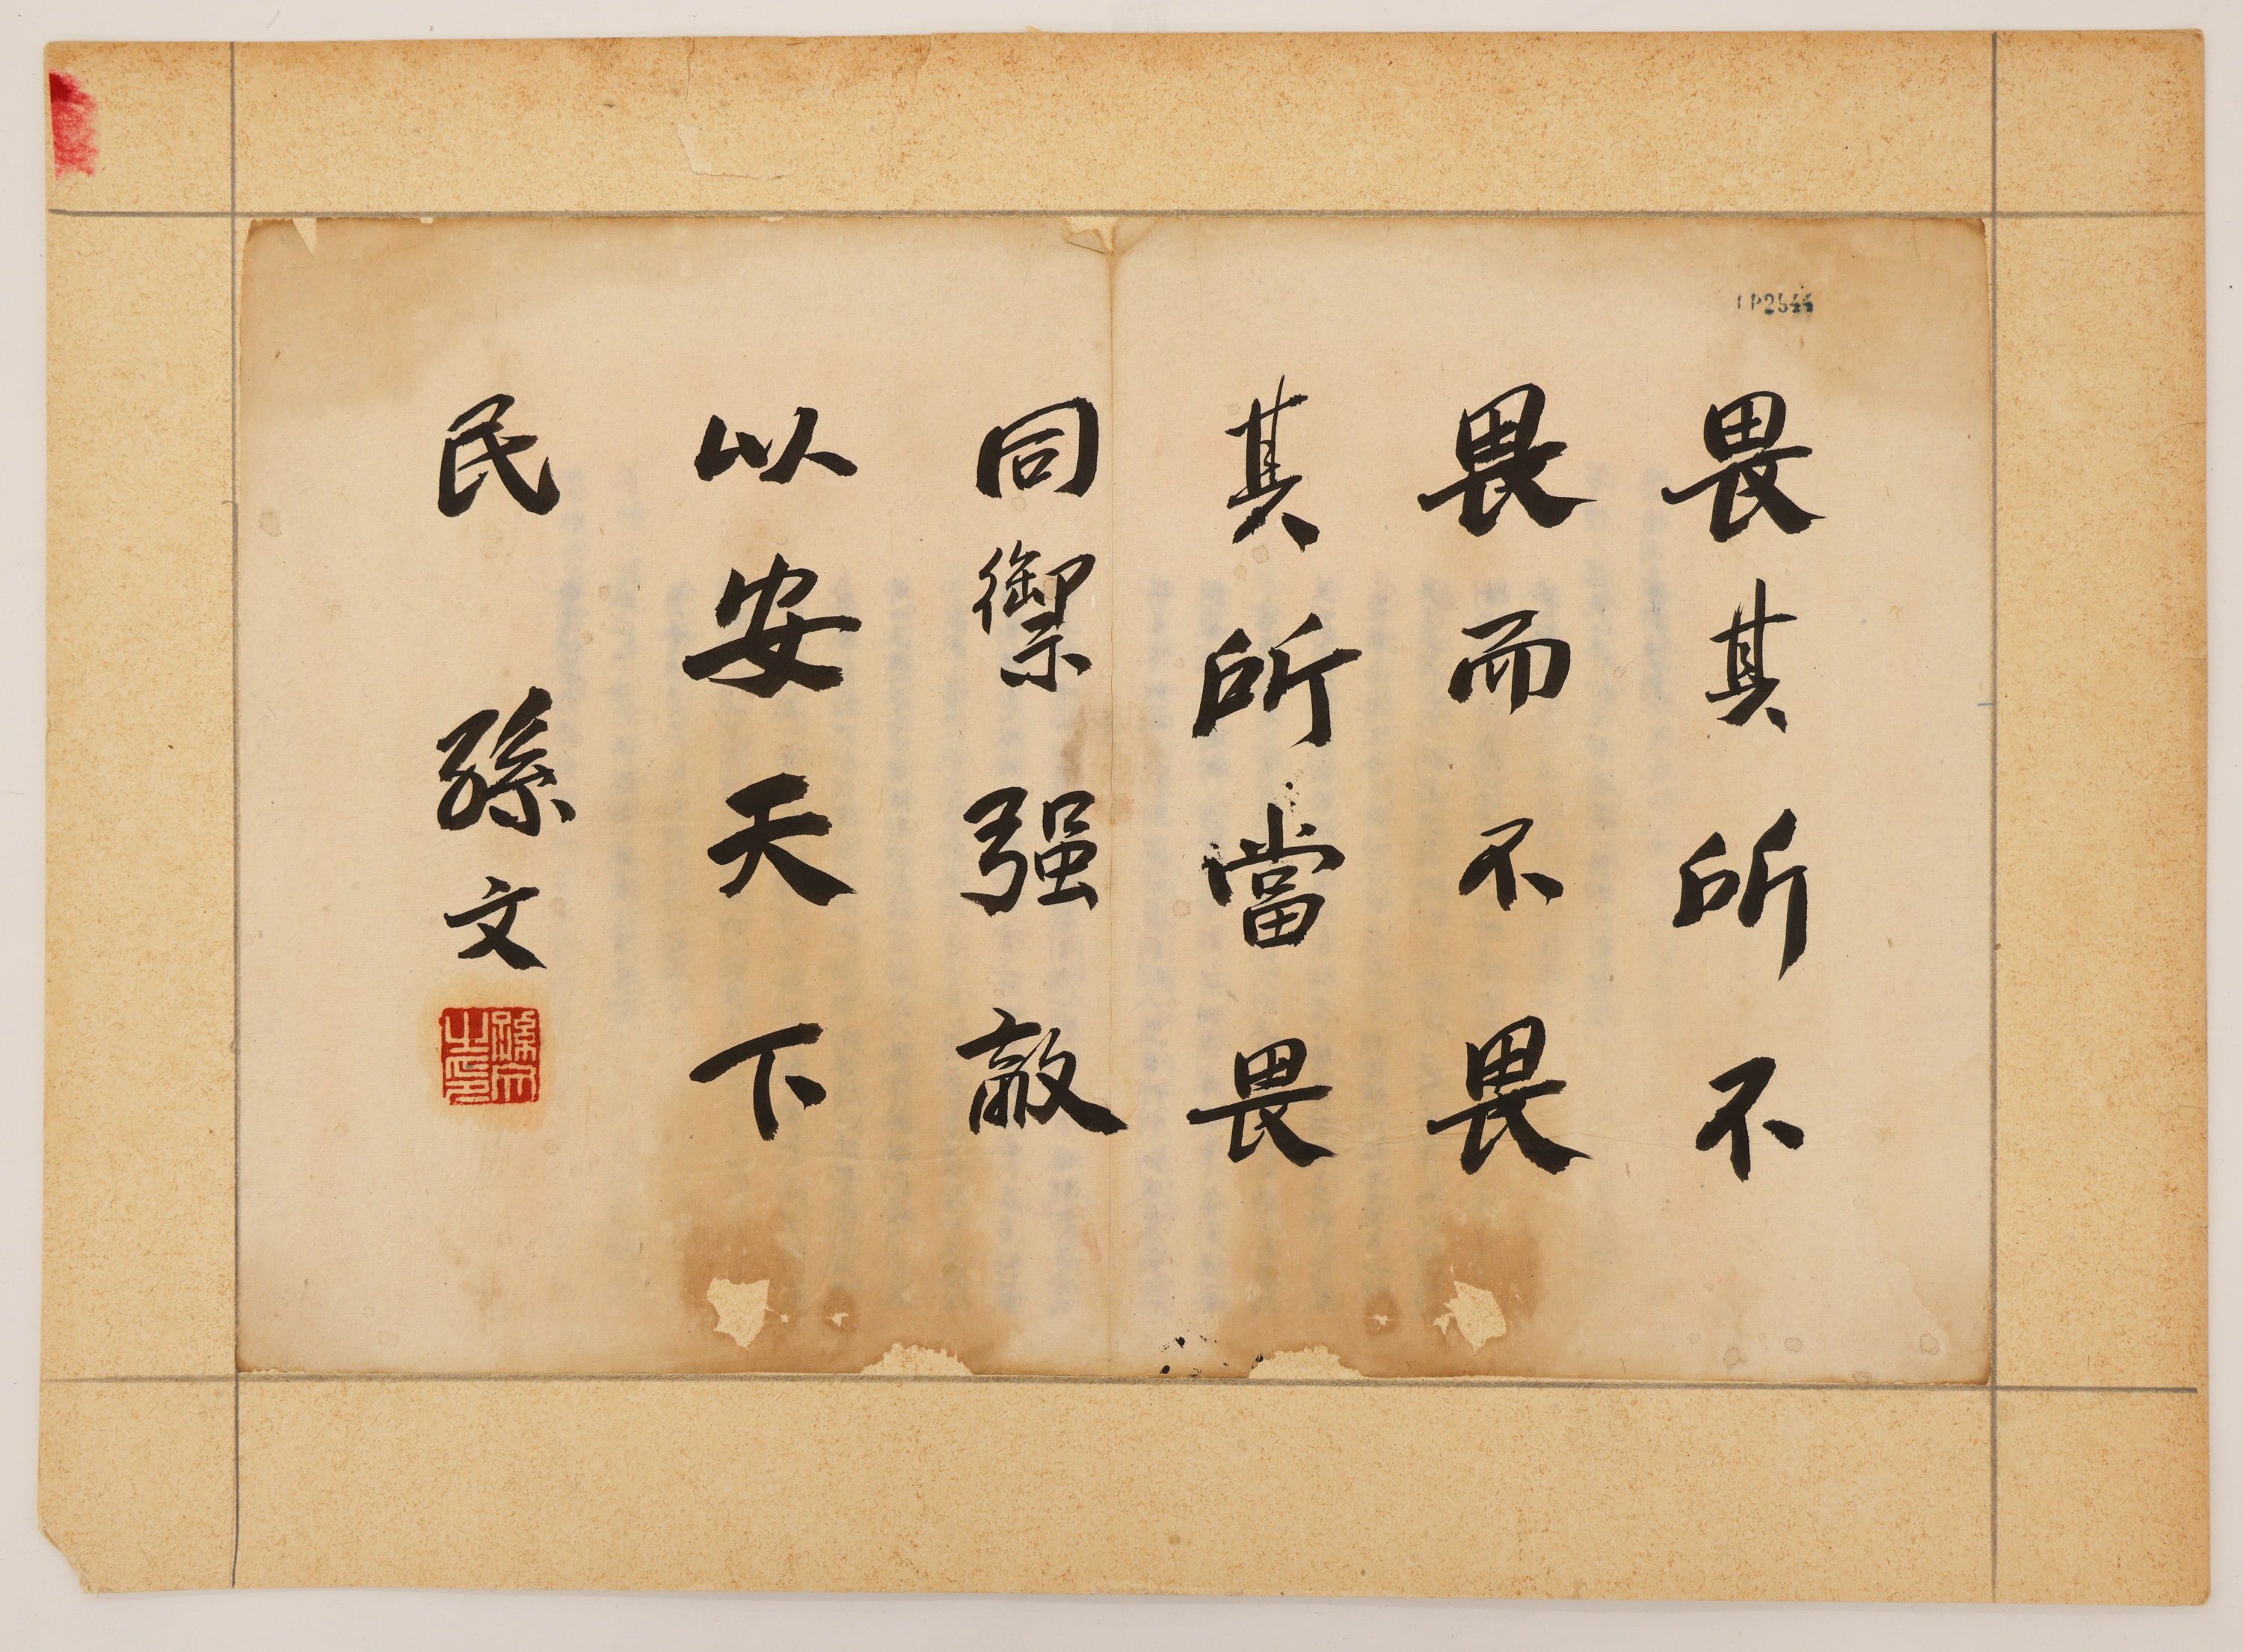 畏其所不
畏而不畏
其所當畏
同禦强敵
以安天下
民 孫文
孫文之印